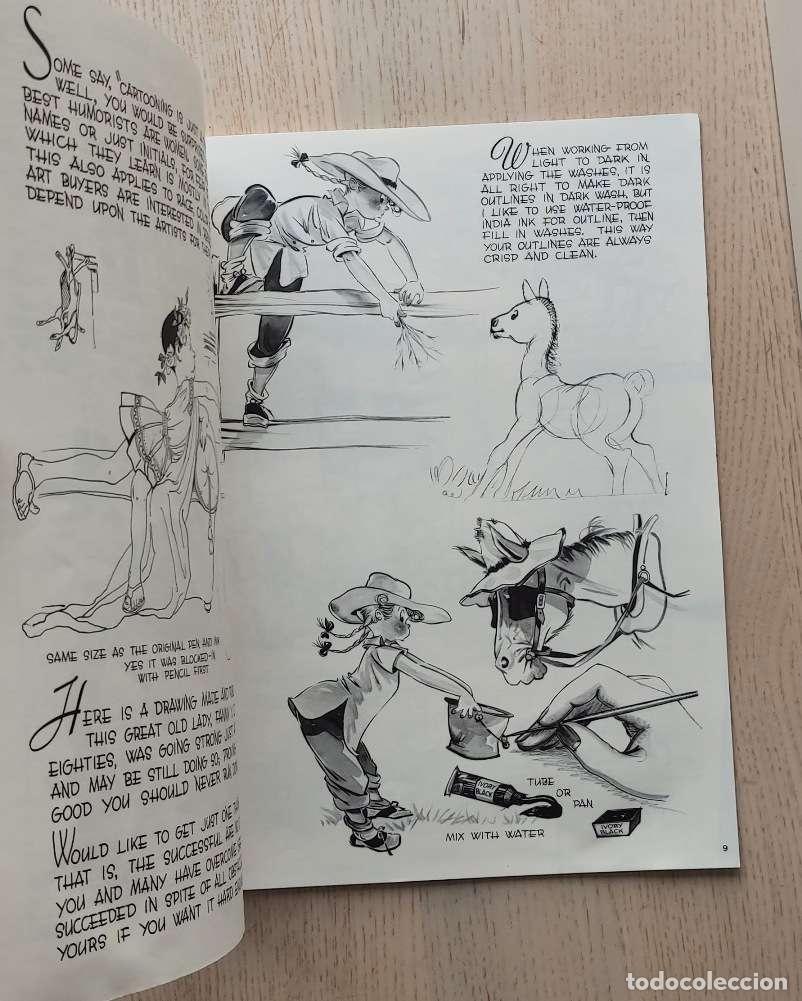 SOME SAY, "CARTOONING IS JUST
WELL, YOU WOULD BE
BEST HUMORISTS ARE WOMEN,
NAMES OR JUST INITIALS, FOR
WHICH THEY LEARN IS MOSTLY
THIS ALSO APPLIES TO RACE,
ART BUYERS ARE INTERESTED IN
DEPEND UPON THE ARTISTS FOR
SAME SIZE AS THE ORIGINAL PEN AND INK
YES IT WAS BLOCKED-IN
WITH PENCIL FIRST
HERE IS A DRAWING MADE
THIS GREAT OLD LADY,
EIGHTIES, WAS GOING STRONG JUST
AND MAY BE STILL DOING SO;
GOOD YOU SHOULD NEVER
WOULD LIKE TO GET JUST ONE
THAT IS, THE SUCCESSFUL ARE
YOU AND MANY HAVE OVERCOME
SUCCEEDED IN SPITE OF ALL
YOURS IF YOU WANT IT HARD
WHEN WORKING FROM
LIGHT TO DARK IN
APPLYING THE WASHES, IT IS
ALL RIGHT TO MAKE DARK
OUTLINES IN DARK WASH, BUT
I LIKE TO USE WATER-PROOF
INDIA INK FOR OUTLINE, THEN
FILL IN WASHES. THIS WAY
YOUR OUTLINES ARE ALWAYS
CRISP AND CLEAN.
IVORY
BLACK
TUBE
OR
PAN
IVORY
BLACK
MIX WITH WATER
9
todocoleccion